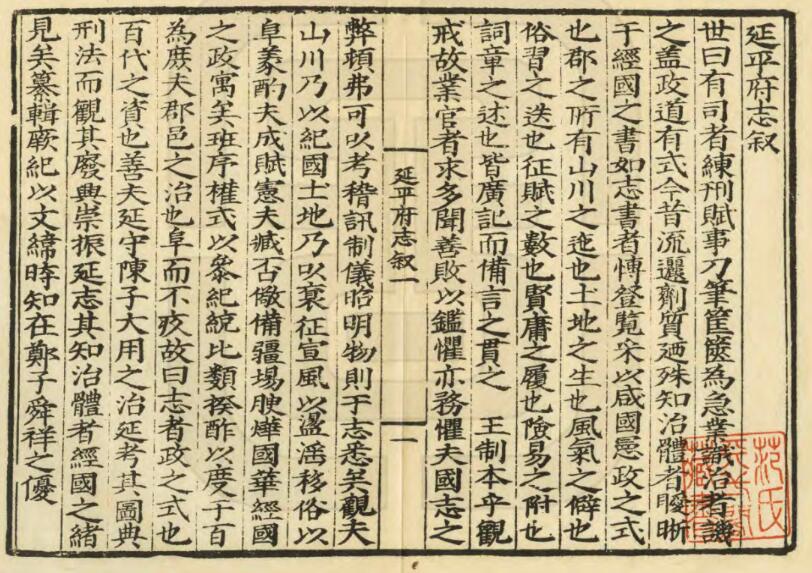 延平府志叙
世曰有司者練刑賦事刀筆筐篋為急業識治者譏
之盖政道有式今昔流邐劑質廼殊知治體者曖晣
于經國之書如志書者愽登覧采以咸國憲政之式
也郡之所有山川之迤也土地之生也風氣之僻也
俗習之迭也征賦之數也賢庸之履也險易之附也
詞章之述也皆廣記而備言之貫之 王制本乎觀
戒故業官者求多聞善敗以鑑懼亦務懼夫國志之
延平府志叙一
一
弊頓弗可以考稽訊制儀昭明物則于志悉矣觀夫
山川乃以紀國土地乃以裒征宣風以盪滛移俗以
阜蒙酌夫成賦憲夫臧否儆備疆埸腴爗國華經國
之政寓矣班序權式以叅紀統比類揆酢以度于百
為庶夫郡邑之治也阜而不疚故曰志者政之式也
百代之資也善夫延守陳子大用之治延考其圖典
刑法而觀其廢興崇振延志其知治體者經國之緒
見矣纂輯厥紀以文緯時知在鄭子舜祥之優
范氏